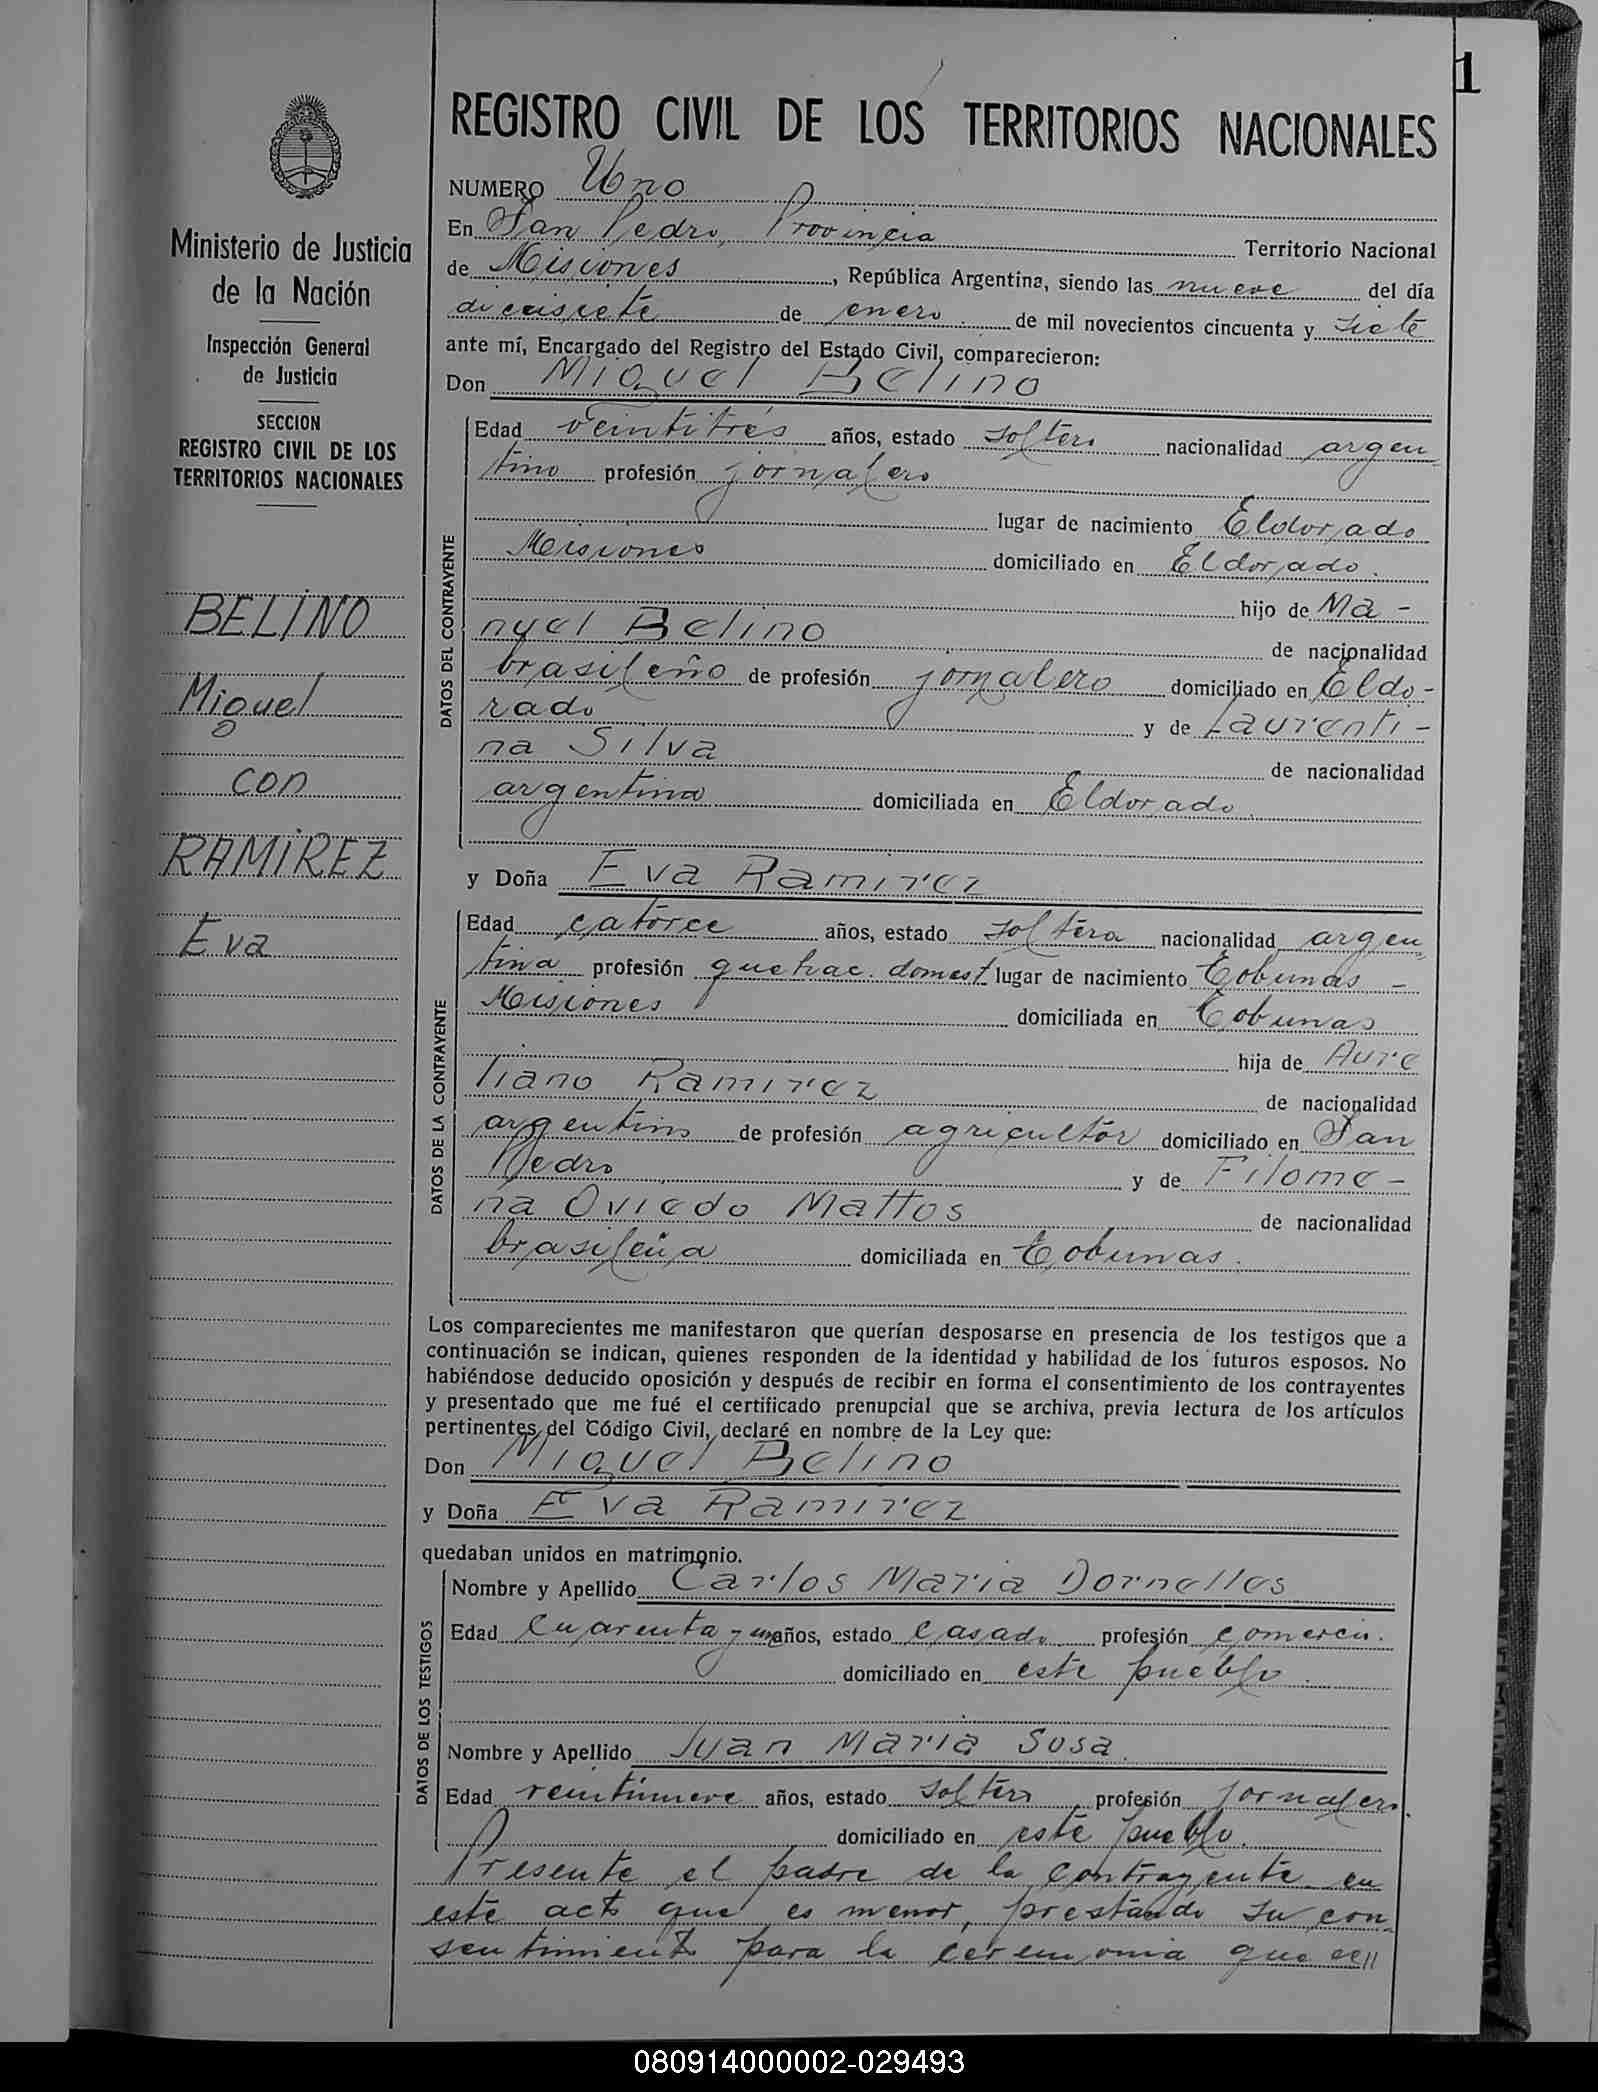 1
REGISTRO CIVIL DE LOS TERRITORIOS NACIONALES
NUMERO Uno
En San Pedro, Provincia Territorio Nacional
de Misiones, República Argentina, siendo las nueve del día
diecisiete de enero de mil novecientos cincuenta y siete
ante mí, Encargado del Registro del Estado Civil, comparecieron:
Don Miguel Belino
Ministerio de Justicia
de la Nación
Inspección General
de Justicia
SECCION
REGISTRO CIVIL DE LOS
TERRITORIOS NACIONALES
BELINO
Miguel
con
RAMIREZ
Eva
DATOS DEL CONTRAYENTE
Edad veintitrés años, estado soltero nacionalidad argen
tino profesión jornalero
lugar de nacimiento Eldorado
Misiones domiciliado en Eldorado.
hijo de Ma-
nuel Belino de nacionalidad
brasileño de profesión jornalero domiciliado en Eldo-
rado y de Laurenti-
na Silva de nacionalidad
argentina domiciliada en Eldorado.
y Doña Eva Ramirez
DATOS DE LA CONTRAYENTE
Edad catorce años, estado soltera nacionalidad argen
tina profesión quehac. domest. lugar de nacimiento Tobunas -
Misiones domiciliada en Tobunas
hija de Aure
liano Ramirez de nacionalidad
argentino de profesión agricultor domiciliado en San
Pedro y de Filome-
na Oviedo Mattos de nacionalidad
brasileña domiciliada en Tobunas.
Los comparecientes me manifestaron que querían desposarse en presencia de los testigos que a
continuación se indican, quienes responden de la identidad y habilidad de los futuros esposos. No
habiéndose deducido oposición y después de recibir en forma el consentimiento de los contrayentes
y presentado que me fué el certificado prenupcial que se archiva, previa lectura de los artículos
pertinentes del Código Civil, declaré en nombre de la Ley que:
Don Miguel Belino
y Doña Eva Ramirez
quedaban unidos en matrimonio.
DATOS DE LOS TESTIGOS
Nombre y Apellido Carlos Maria Dornelles
Edad cuarenta y un años, estado casado profesión comercio.
domiciliado en este pueblo.
Nombre y Apellido Juan Maria Sosa.
Edad veintinueve años, estado soltero profesión jornalero.
domiciliado en este pueblo.
Presente el padre de la contrayente en
este acto que es menor, prestando su con-
sentimiento para la ceremonia que ce//
080914000002-029493